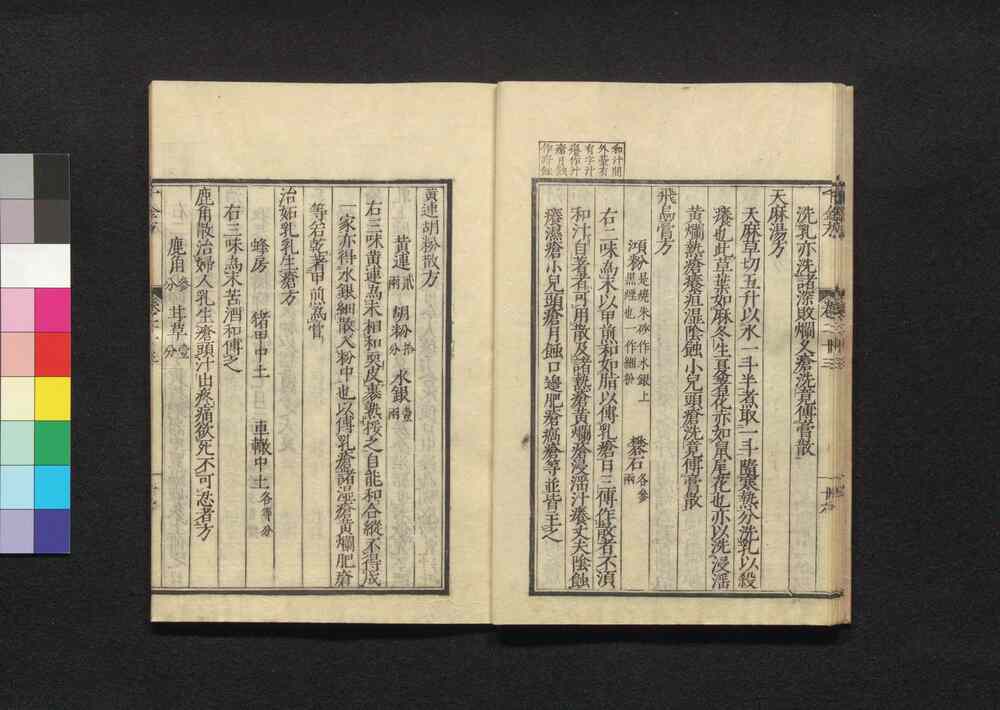 洗乳亦洗諸深敗爛久瘡洗竟傅膏散
天麻湯方
天麻草切五升以水一斗半煮取一斗隨寒熱分洗乳以殺
癢也此草葉如麻冬生夏著花赤如鼠尾花也亦以洗浸淫
黃爛熱瘡癢疽濕陰蝕小兒頭瘡洗竟傅膏散
飛烏膏方
傾粉是燒朱砂作水銀上
黑煙也一作細粉
礬石各參
兩
右二味爲末以甲煎和如脂以傅乳瘡日三傅作散者不須
和汁自著者可用散及諸熱瘡黃爛瘡浸淫汁癢丈夫陰蝕
癢濕瘡小兒頭瘡月蝕口邊肥瘡瘑瘡等並皆主之
和汁閒
外臺有
有字汁
癢作汁
瘡月蝕
作疳蝕
黃連胡粉散方
黃連貳
兩
胡粉拾
分
水銀壹
兩
右三味黃連爲末相和耎皮裹熟挼之自能和合縱不得成
一家亦得水銀細散入粉中也以傅乳瘡諸濕瘡黃爛肥瘡
等若乾著甲煎爲膏
治妬乳乳生瘡方
蜂房
猪甲中土
車轍中土各等分
右三味爲末苦酒和傅之
鹿角散治婦人乳生瘡頭汁出疼痛欲死不可忍者方
鹿角參
分
甘草壹
分